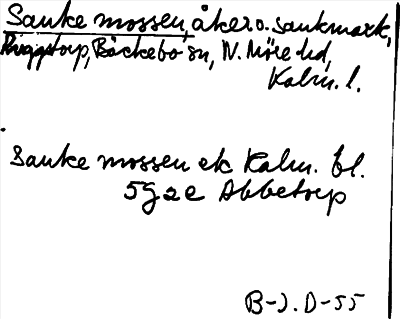 Sanke mossen, åker o. sankmark,
Ruggstorp, Bäckebo sn, N. Möre hd,
Kalm. l.
Sanke mossen ek Kalm. bl.
5G 2e Abbetorp
B-J. D-55